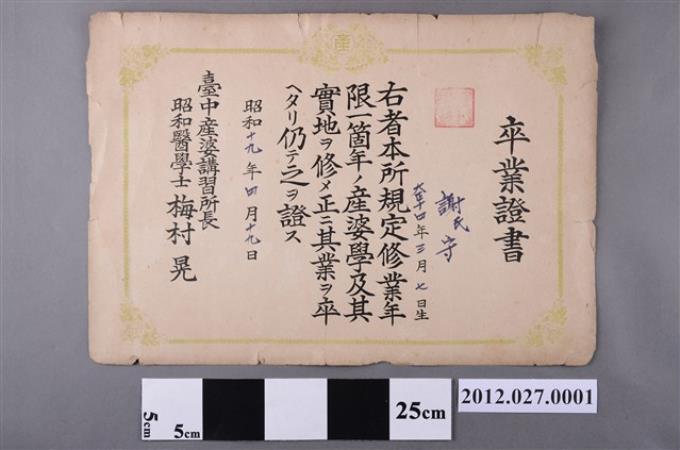 產
卒業證書
謝氏守
大正十四年三月七日生
右者本所規定修業年
限一箇年ノ產婆學及其
實地ヲ修メ正ニ其業ヲ卒
ヘタリ仍テ之ヲ證ス
昭和十九年四月十九日
臺中產婆講習所長
昭和醫學士 梅村晃
5cm
5cm
25cm
2012.027.0001